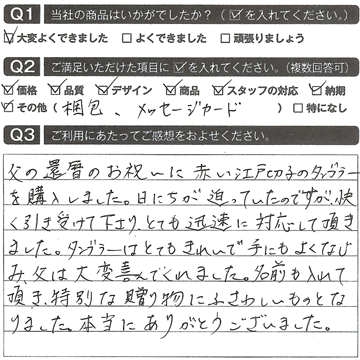 Q1 当社の商品はいかがでしたか？（☑を入れてください。）
☑大変よくできました □よくできました □頑張りましょう
Q2 ご満足いただけた項目に☑を入れてください。（複数回答可）
☑価格 ☑品質 ☑デザイン ☑商品 ☑スタッフの対応 ☑納期
☑その他（梱包、メッセージカード）□特になし
Q3 ご利用にあたってご感想をおよせください。
父の還暦のお祝いに赤い江戸切子のタンブラー
を購入しました。日にちが迫っていたのですが、快
く引き受けて下さり、とても迅速に対応して頂き
ました。タンブラーはとてもきれいで手にもよくなじ
み、父は大変喜んでくれました。名前も入れて
頂き、特別な贈り物にふさわしいものとな
りました。本当にありがとうございました。